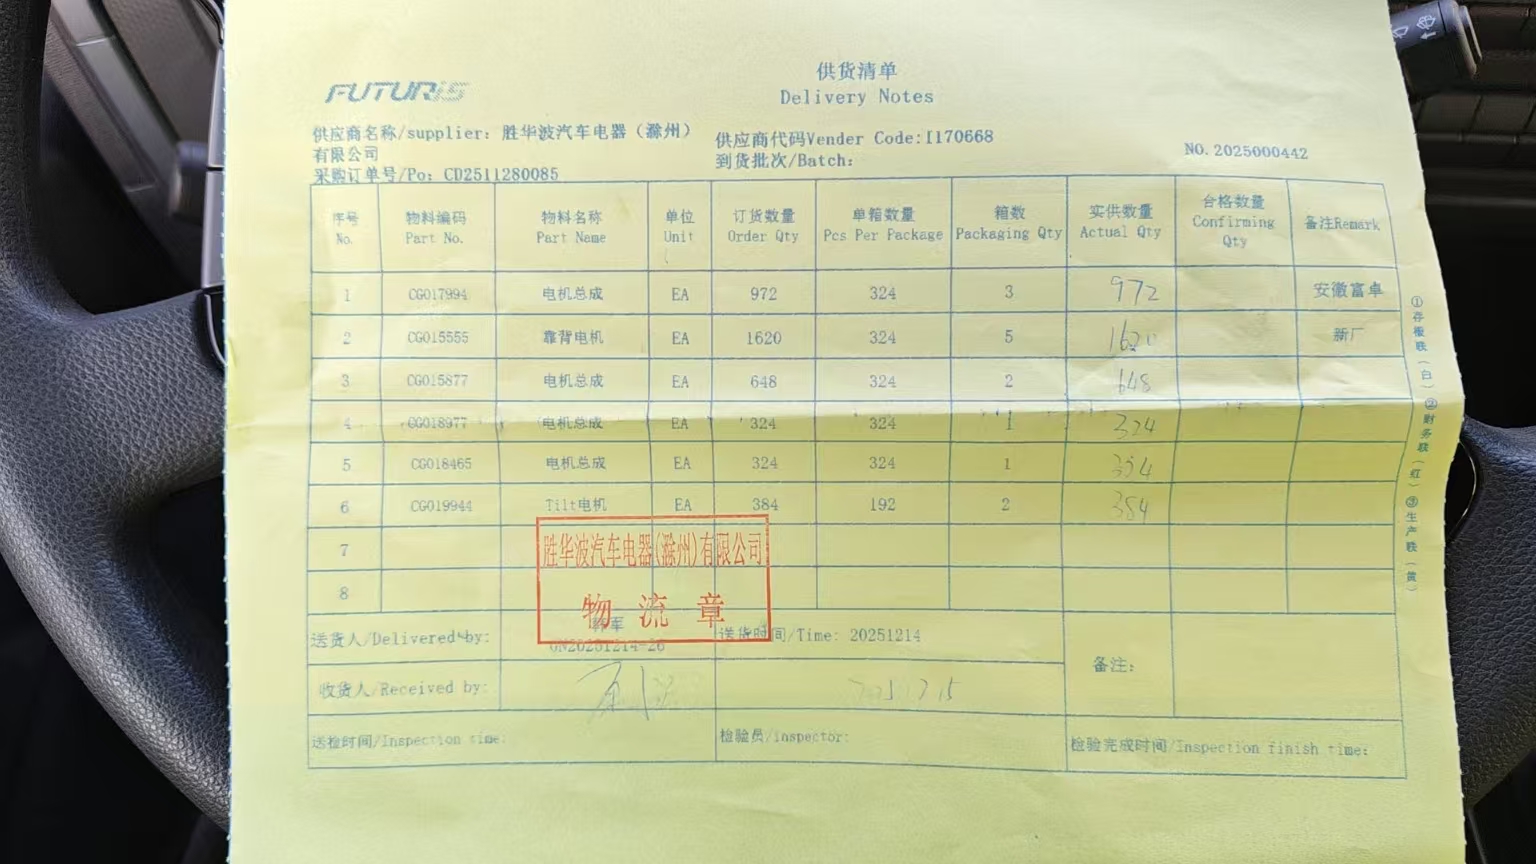 FUTURIS
供货清单
Delivery Notes
供应商名称/supplier: 胜华波汽车电器（滁州）
有限公司
供应商代码Vender Code:I170668
到货批次/Batch:
NO.2025000442
采购订单号/Po: CD2511280085
序号 No. 物料编码 Part No. 物料名称 Part Name 单位 Unit 订货数量 Order Qty 单箱数量 Pcs Per Package 箱数 Packaging Qty 实供数量 Actual Qty 合格数量 Confirming Qty 备注Remark
1 CG017994 电机总成 EA 972 324 3 972 安徽富卓
2 CG015555 靠背电机 EA 1620 324 5 1620 新厂
3 CG015877 电机总成 EA 648 324 2 648
4 CG018977 电机总成 EA 324 324 1 324
5 CG018465 电机总成 EA 324 324 1
6 CG019944 Tilt电机 EA 384 192 2 384
7
8
胜华波汽车电器(滁州)有限公司
物流章
送货人/Delivered by: 韩军
ON20251214-26
送货时间/Time: 20251214
备注:
收货人/Received by:
送检时间/Inspection time:
检验员/inspector:
检验完成时间/Inspection finish time:
①存根联（白）②财务联（红）③生产联（黄）